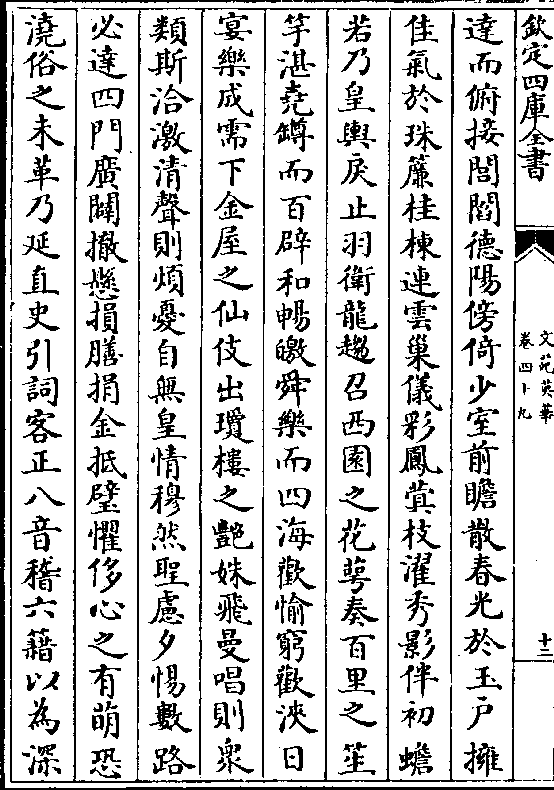 欽定四庫全書
文苑英華
卷四十九
十三
達而俯接閭閻德陽傍倚少室前瞻散春光於玉戶擁
佳氣於珠簾桂棟連雲巢儀彩鳳蓂枝濯秀影伴初蟾
若乃皇輿戾止羽衛龍趨召西園之花萼奏百里之笙
竽湛堯罇而百辟和暢皦舜樂而四海歡愉窮歡浹日
宴樂成需下金屋之仙伎出瓊樓之艷姝飛曼唱則衆
類斯洽激清聲則煩憂自無皇情穆然聖慮夕惕數路
必達四門廣闢撤懸損膳捐金抵璧懼侈心之有萌恐
澆俗之未革乃延直史引詞客正八音稽六籍以為深